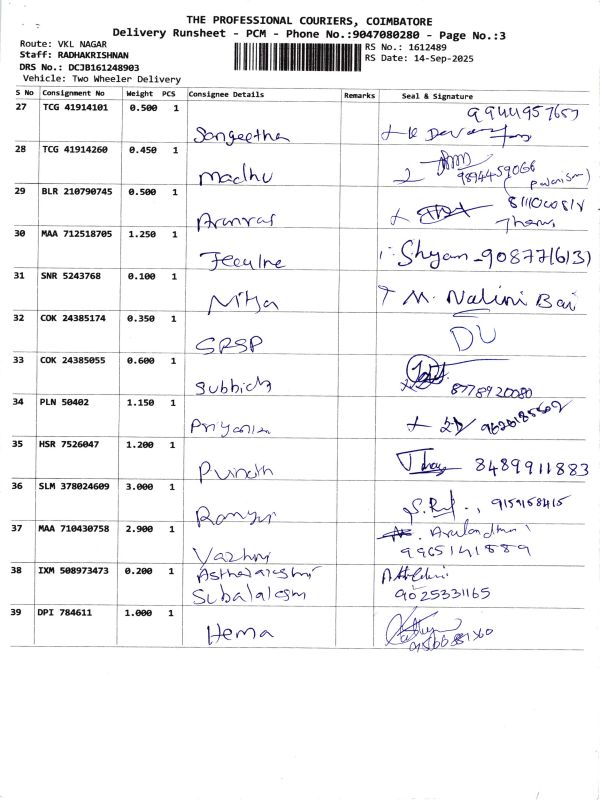 THE PROFESSIONAL COURIERS, COIMBATORE
Delivery Runsheet - PCM - Phone No.:9047080280 - Page No.:3
Route: VKL NAGAR RS No.: 1612489
Staff: RADHAKRISHNAN RS Date: 14-Sep-2025
DRS No.: DCJB161248903
Vehicle: Two Wheeler Delivery
S No Consignment No Weight PCS Consignee Details Remarks Seal & Signature
27 TCG 41914101 0.500 1
Sangeetha 9944957657
28 TCG 41914260 0.450 1
Madhu 9894459066
29 BLR 210790745 0.500 1
30 MAA 712518705 1.250 1
Shyam - 9087716131
31 SNR 5243768 0.100 1
Nitya M. Nalini Bai
32 COK 24385174 0.350 1
SRSP DU
33 COK 24385055 0.600 1
8778920080
34 PLN 50402 1.150 1
35 HSR 7526047 1.200 1
8489911883
36 SLM 378024609 3.000 1
9159158415
37 MAA 710430758 2.900 1
9965141889
38 IXM 508973473 0.200 1
9025331165
39 DPI 784611 1.000 1
Hema